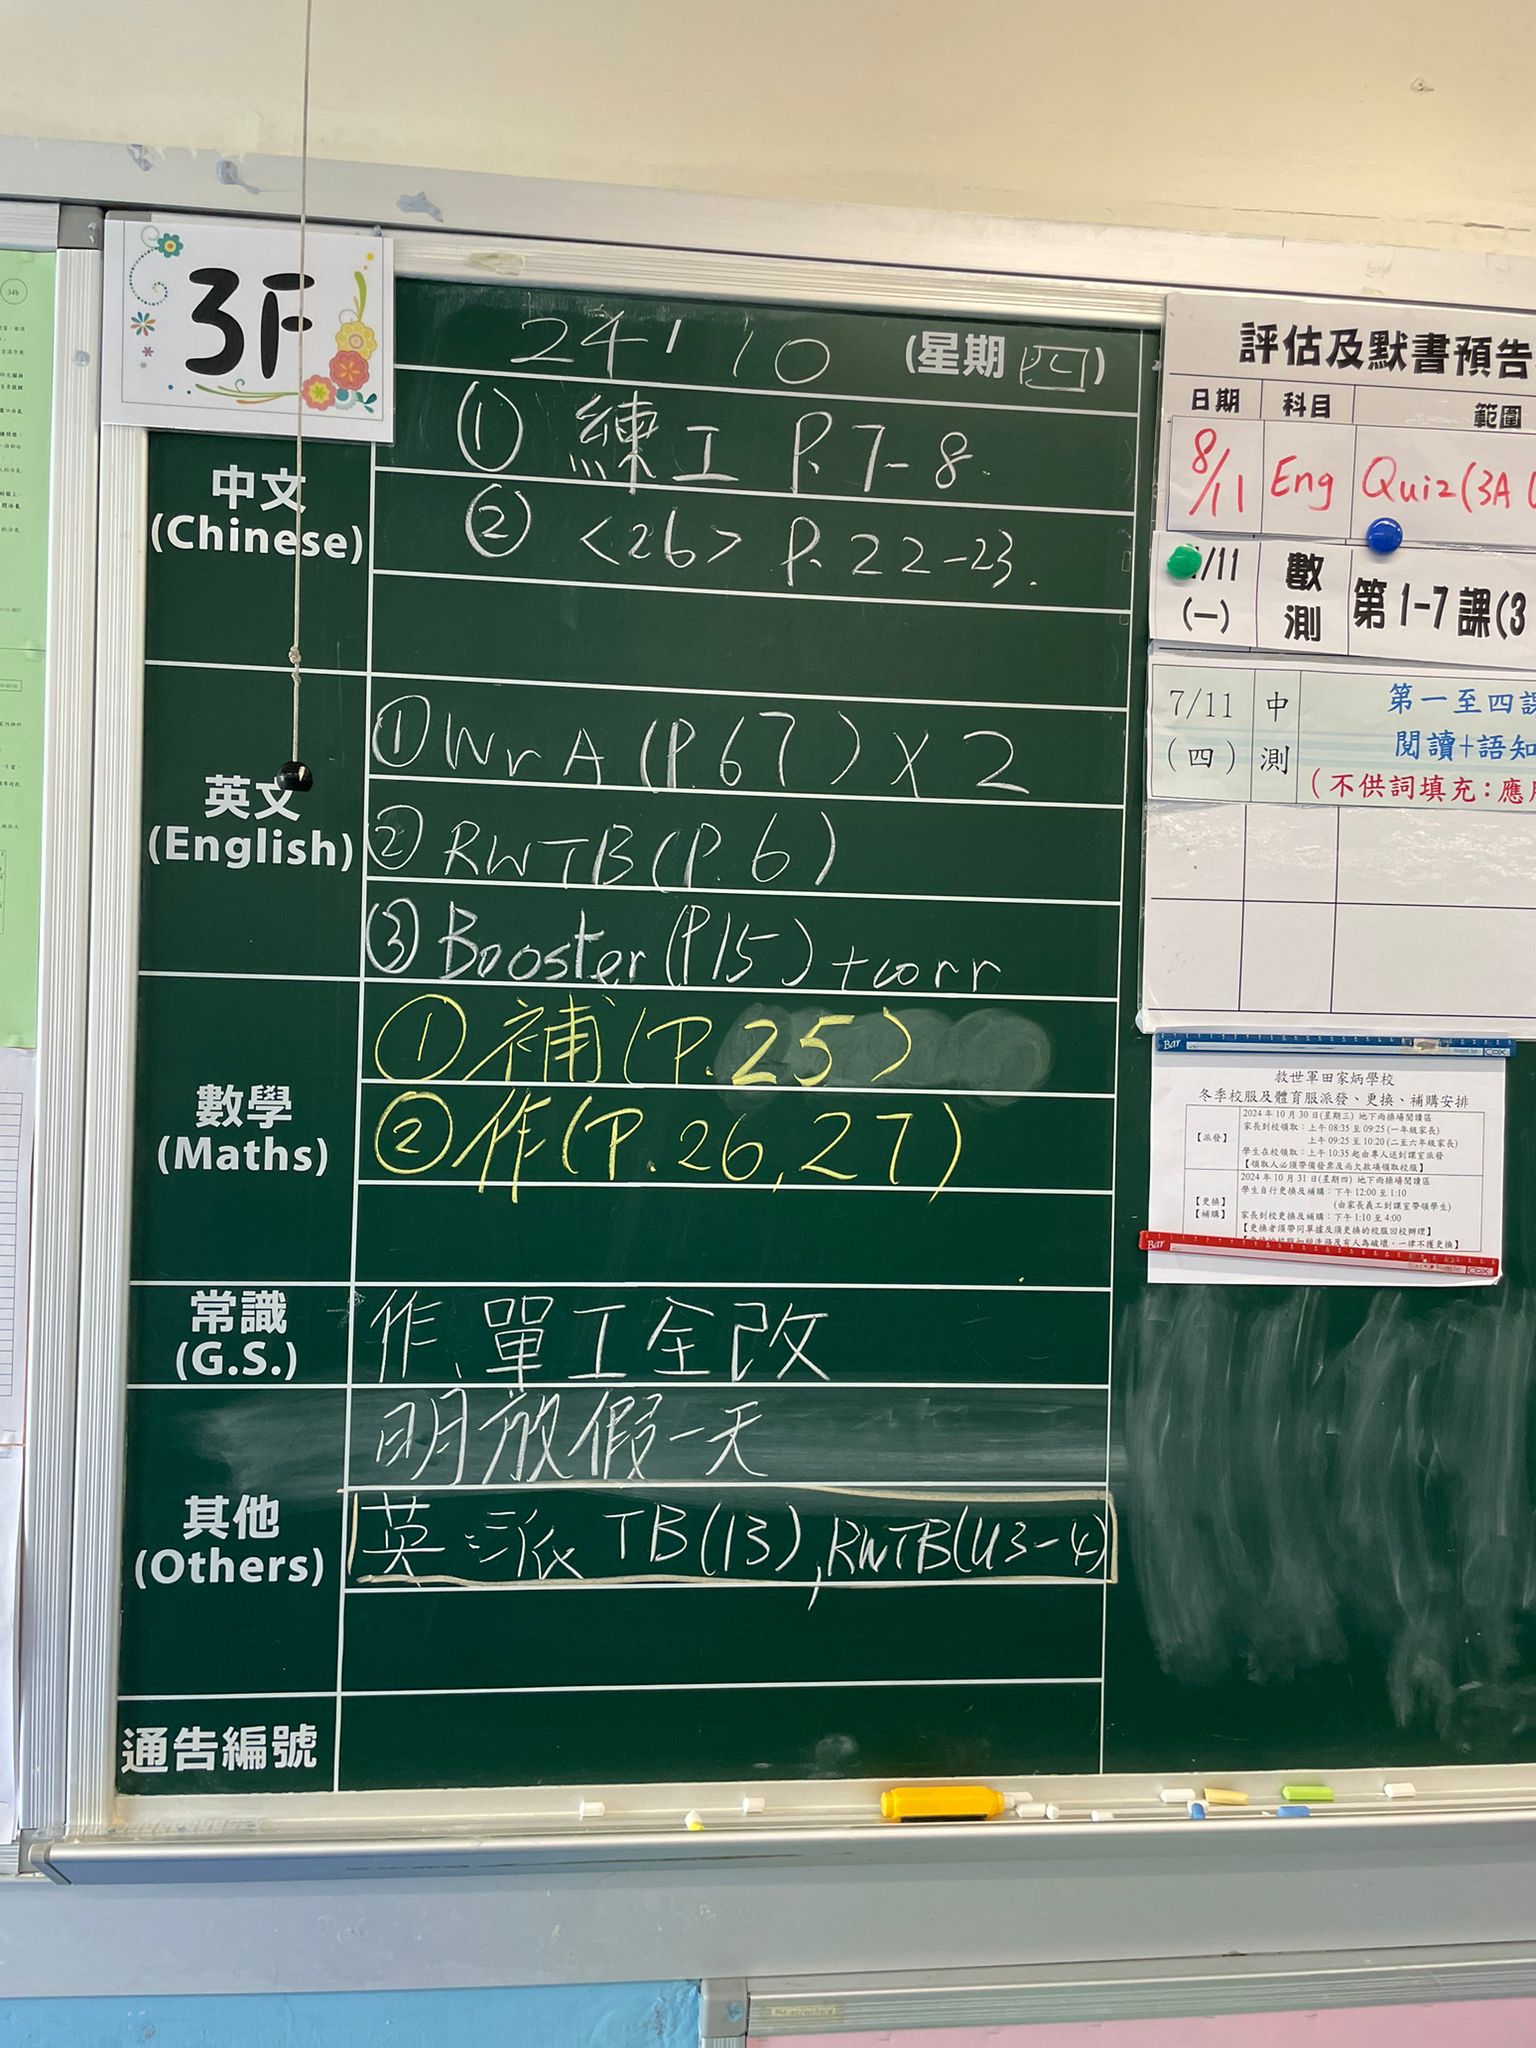 3F
24/10 (星期四)
中文
(Chinese)
① 練工 P.7-8.
② <26> P.22-23.
英文
(English)
① Wr A (P.67) x 2
② RWTB (P.6)
③ Booster (P15) + corr
數學
(Maths)
① 補 (P.25)
② 作 (P.26,27)
常識
(G.S.)
作、單工全改
其他
(Others)
明放假一天
英:派 TB(13), RWTB(U3-4)
通告編號
評估及默書預告
日期 科目 範圍
8/11 Eng Quiz (3A
/11
(一)
數
測
第1-7課(3
7/11
(四)
中
測
第一至四課
閱讀+語知
(不供詞填充:應用
Bar COX
救世軍田家炳學校
冬季校服及體育服派發、更換、補購安排
【派發】
2024 年 10 月 30 日(星期三) 地下雨操場閱讀區
家長到校領取:上午 08:35 至 09:25 (一年級家長)
上午 09:25 至 10:20 (二至六年級家長)
學生在校領取:上午 10:35 起由專人送到課室派發
【領取人必須帶備發票及尚欠款項領取校服】
【更換】
【補購】
2024 年 10 月 31 日(星期四) 地下雨操場閱讀區
學生自行更換及補購:下午 12:00 至 1:10
(由家長義工到課室帶領學生)
家長到校更換及補購:下午 1:10 至 4:00
【更換者須帶同單據及須更換的校服回校辦理】
及有人為破壞,一律不獲更換】
Bar COX
34b